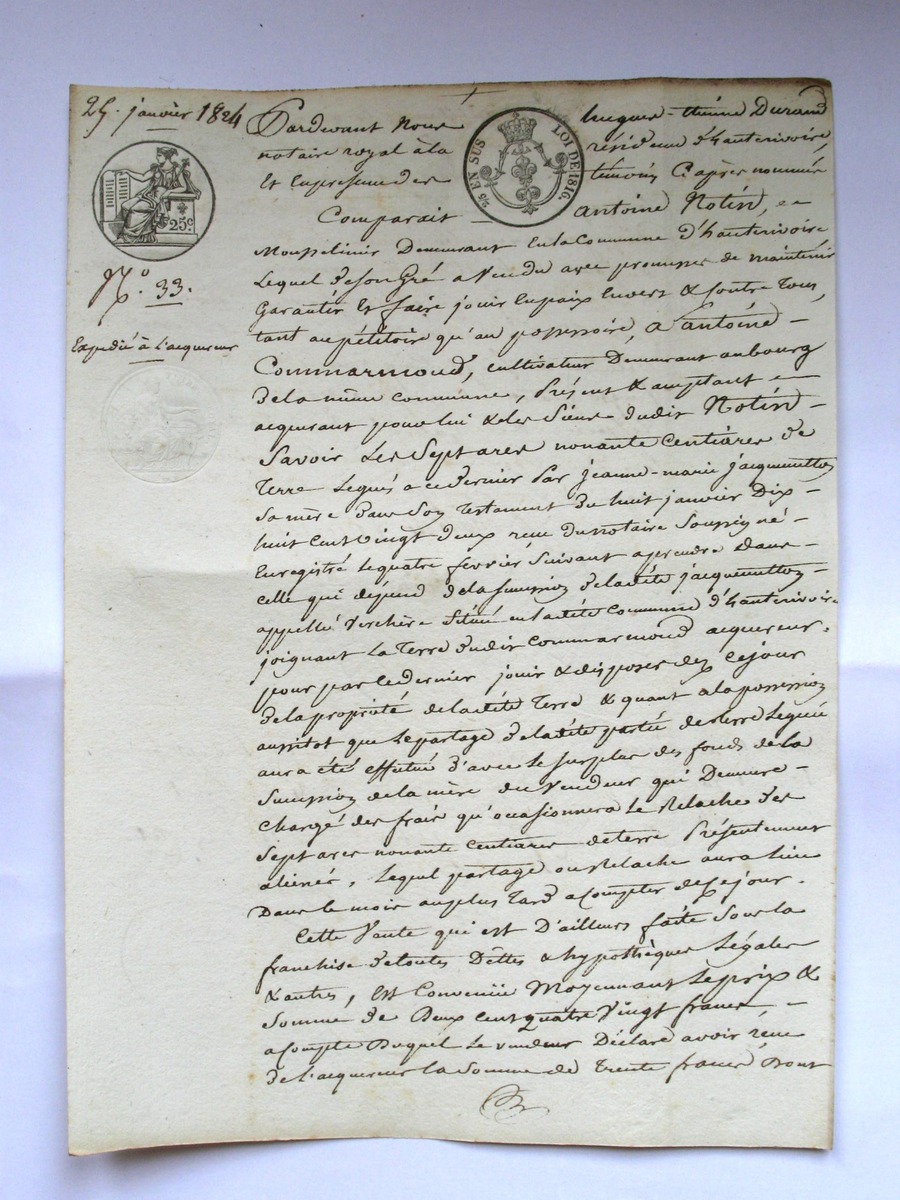 25. janvier 1824
25c
EN SUS
LOI DE 1816.
N.o 33.
Expédié à l'acquereur
Pardevant Nous hugues-thème Durand
notaire royal à la résidence d'hauterivoire,
Et en présence des témoins Ci après nommés
Comparait Antoine Notin,
demeurant En la Commune d'hauterivoire
Lequel de son Gré a Vendu avec promesse de maintenir
Garantir et faire jouir en paix Envers & Contre Tous,
tant au pétitoire qu'au possessoire, a Antoine-
Commarmond, cultivateur Demeurant au bourg
de la même commune, Présent & acceptant
acquerant pour lui & les Siens dudit Notin-
Savoir Les Sept ares nonante Centiares de
Terre Legués a ce dernier Par jeanne-marie jacquemetton
Sa mère dans Son Testament du huit janvier Dix-
huit Cent Vingt deux recu du notaire Soussigné-
Enregistré Le quatre fevrier Suivant a prendre dans-
celle qui dépend de la succession de ladite jacquemetton-
appellé Verchère Située en ladite Commune d'hauterivoire
joignant La Terre dudit Commarmond acquereur.
pour par Ce dernier jouir & disposer dez Ce jour
de la propriété de ladite Terre & quant a la possession
aussitot que Le partage de ladite partie de terre Leguée
aura été effectué d'avec Le Surplus des fonds de la
Succession de la mère du Vendeur qui Demeure-
chargé des frais qu'ocasionnera Le Relache des
Sept ares nonante Centiares de terre Présentement
alienés, Lequel partage ou Relache aura lieu
Dans le mois au plus Tard a Compter de Ce jour.
Cette Vente qui est D'ailleurs faite Sous la
franchise de toutes Dettes & hypothèques Légales
& autres, Est Convenüe Moyennant Le prix &
Somme de Deux cent quatre Vingt francs,-
a Compte Duquel Le vendeur Déclare avoir recu
de l'acquereur la Somme de Trente francs, Dont